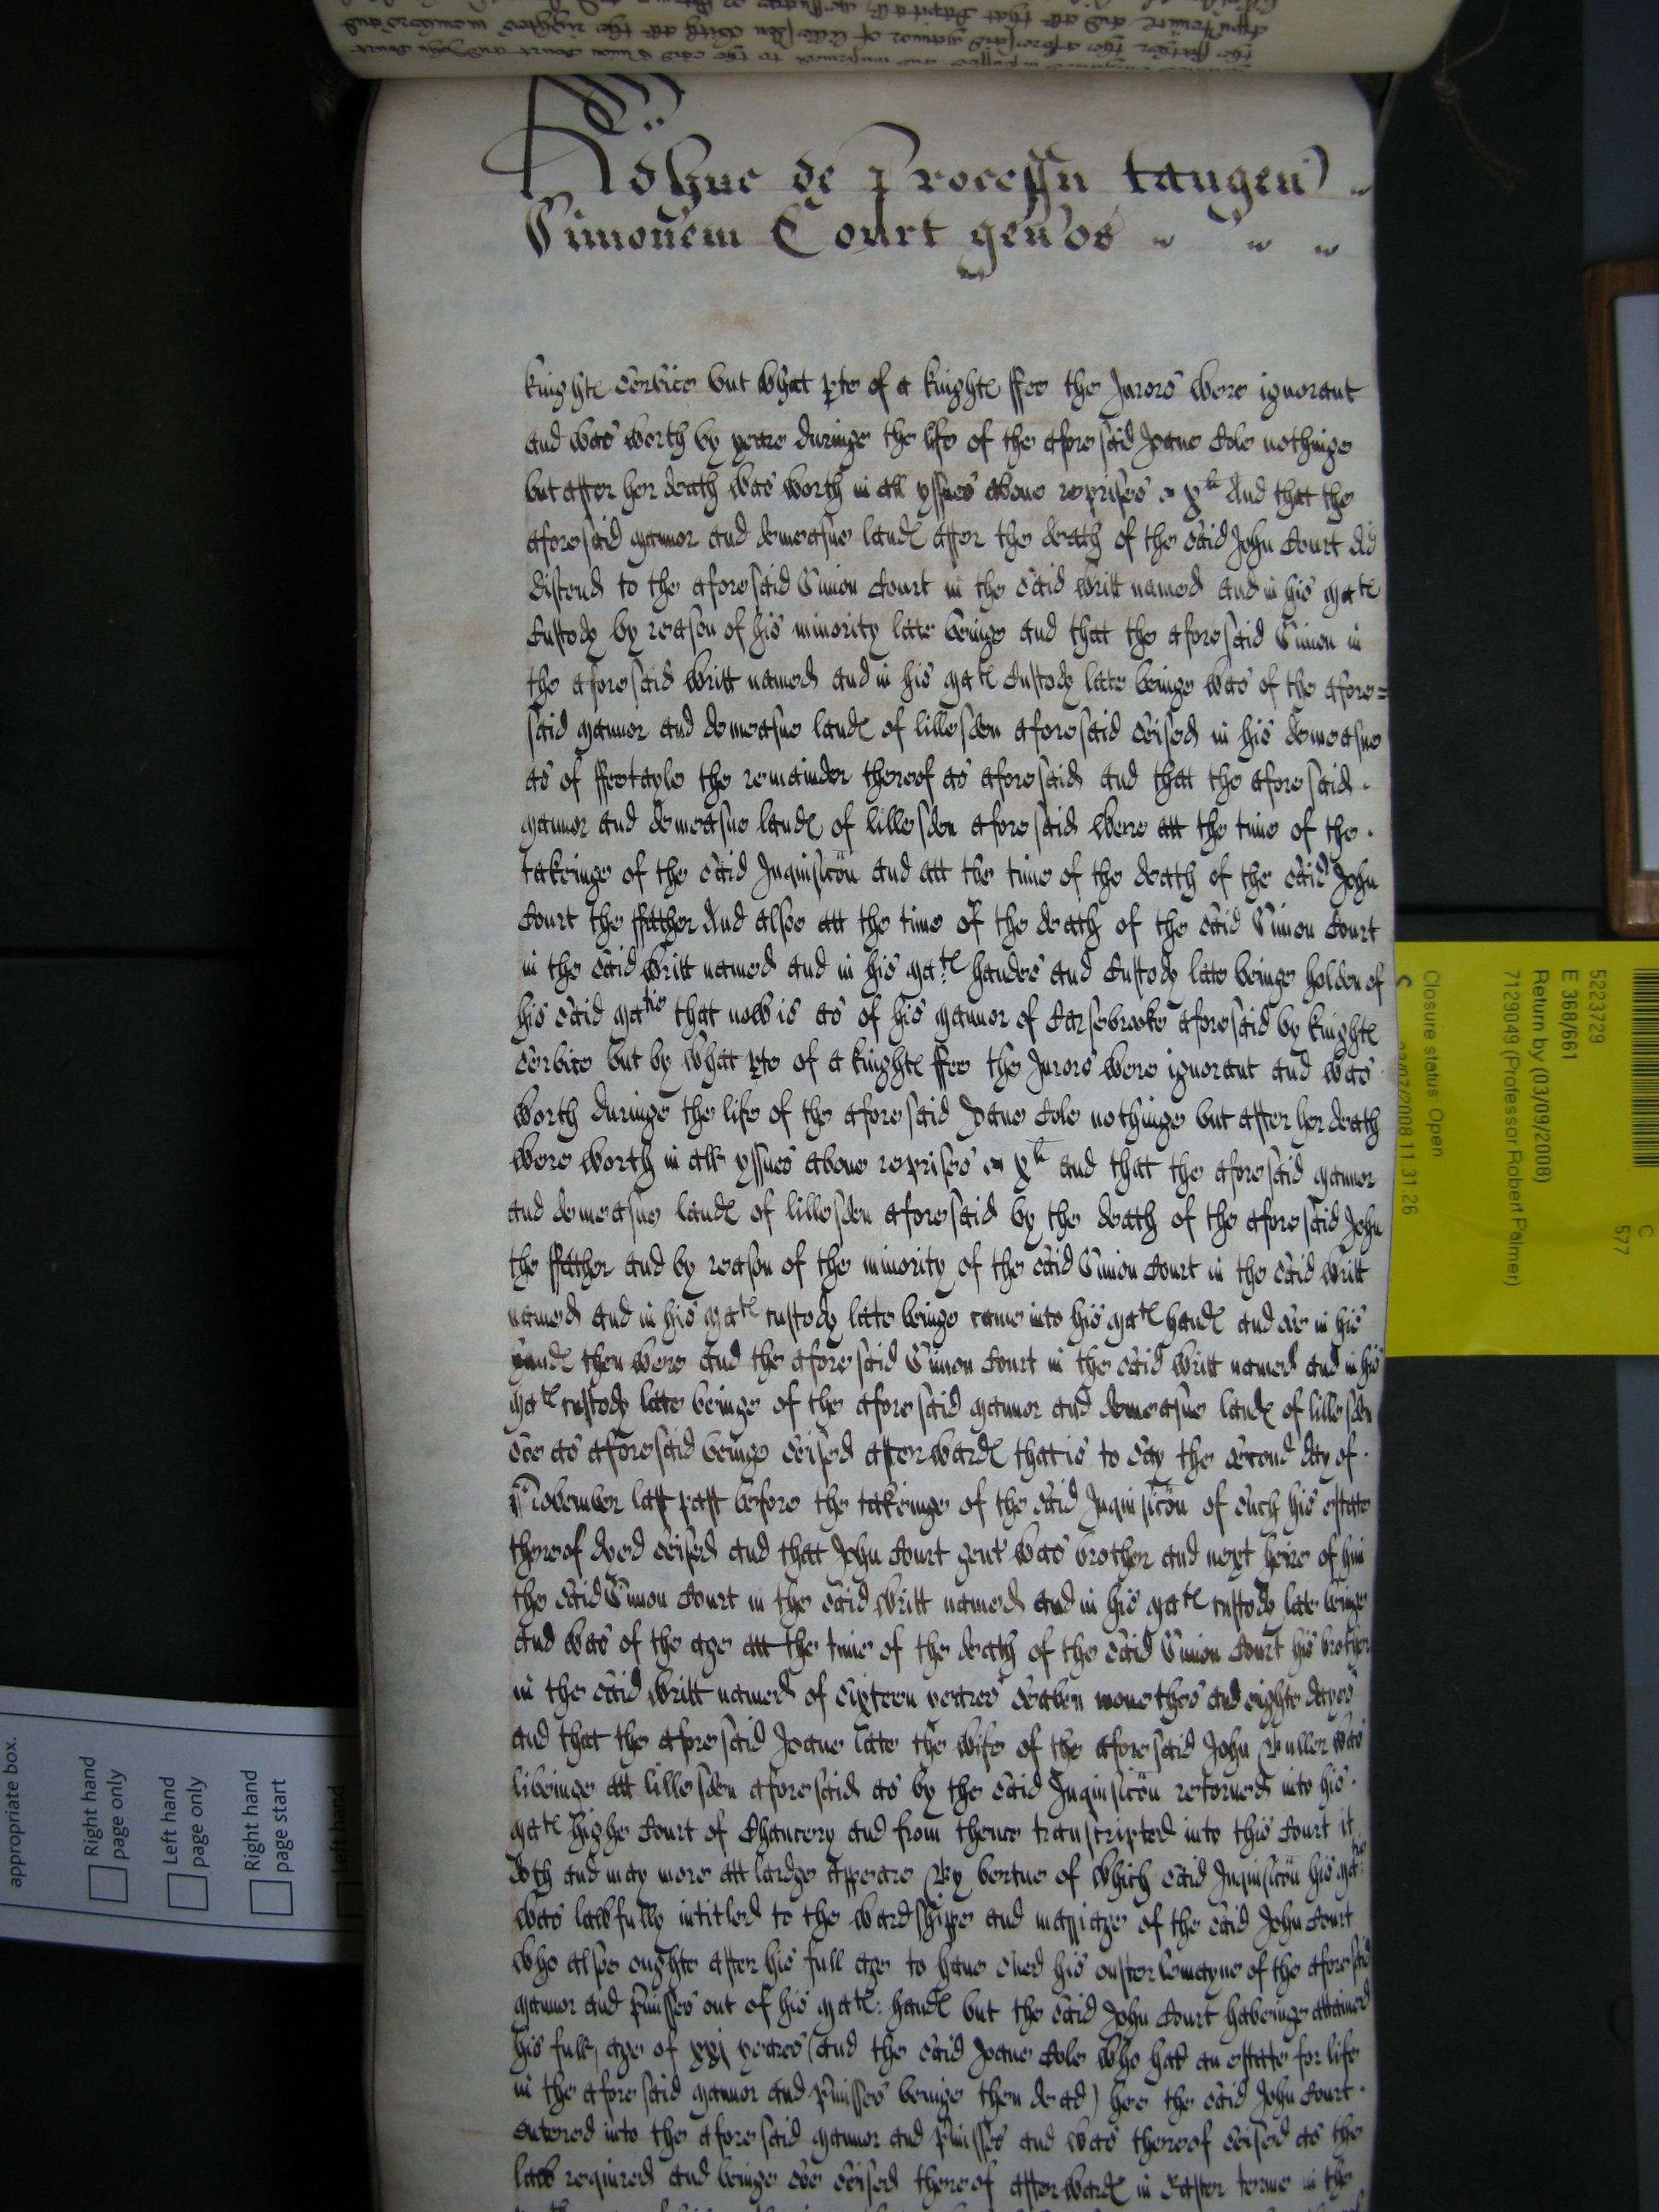 Adhuc de Processu tangen
Simonem Court gen'os
knighte service but what pte of a knighte ffee the Jurors were ignorant
and was worth by yeare duringe the life of the aforesaid Joane Cole nothinge
but after her death was worth in all yssues above reprises xli And that the
aforesaid mannor and demeasne lande after the death of the said John Court did
discend to the aforesaid Simon Court in the said writt named and in his mate
Custody by reason of his minority late beinge and that the aforesaid Simon in
the aforesaid writt named and in his mate Custody late beinge was of the afore=
said mannor and demeasne lande of lillesden aforesaid seised in his demeasne
as of ffeetayle the remainder thereof as aforesaid and that the aforesaid
mannor and demeasne lande of lillesden aforesaid were att the time of the
takeinge of the said Inquisicõn and att the time of the death of the said John
Court the ffather And alsoe att the time of the death of the said Simon Court
in the said writt named and in his mate: handes and Custody late beinge holden of
his said matie that now is as of his mannor of Carsebrooke aforesaid by knighte
service but by what pte of a knighte ffee the Jurors were ignorant and was
worth duringe the life of the aforesaid Joane Cole nothinge but after her death
were worth in all yssues above reprises xli and that the aforesaid mannor
and demeasne lande of lillesden aforesaid by the death of the aforesaid John
the ffather and by reason of the minority of the said Simon Court in the said writt
named and in his mate custody late beinge came into his mate hande and soe in his
hande then were and the aforesaid Simon Court in the said writt named and in his
mate custody late beinge of the aforesaid mannor and demeasne lande of lillesden
soe as aforesaid beinge seised afterwarde that is to say the second day of
November last past before the takeinge of the said Inquisicõn of such his estate
thereof dyed seised and that John Court gent was brother and next heire of him
the said Simon Court in the said writt named and in his mate custody late beinge
and was of the age att the time of the death of the said Simon Court his brother
in the said writt named of sixteen yeares seaven monethes and eighte dayes
and that the aforesaid Joane late the wife of the aforesaid John Fuller was
liveinge att lillesden aforesaid as by the said Inquisicõn retorned into his
mate highe Court of Chancery and from thence transcripted into this Court it
doth and may more att lardge appeare By vertue of which said Inquisicõn his matie:
was lawfully intitled to the wardshippe and marriage of the said John Court
who alsoe oughte after his full age to have sued his ousterlemayne of the aforesaid
mannor and pmisses out of his mate: hande but the said John Court haveinge attained
his full age of xxj yeares (and the said Joane Cole who had an estate for life
in the aforesaid mannor and pmisses beinge then dead) hee the said John Court
entered into the aforesaid mannor and pmisses and was thereof seised as the
law required and beinge soe seised thereof afterwarde in Easter terme in the
appropriate box.
Right hand
page only
Left hand
page only
Right hand
page start
Left hand
C
577
5223729
E 368/661
Return by (03/09/2008)
7129049 (Professor Robert Palmer)
Closure status: Open
11:31:26